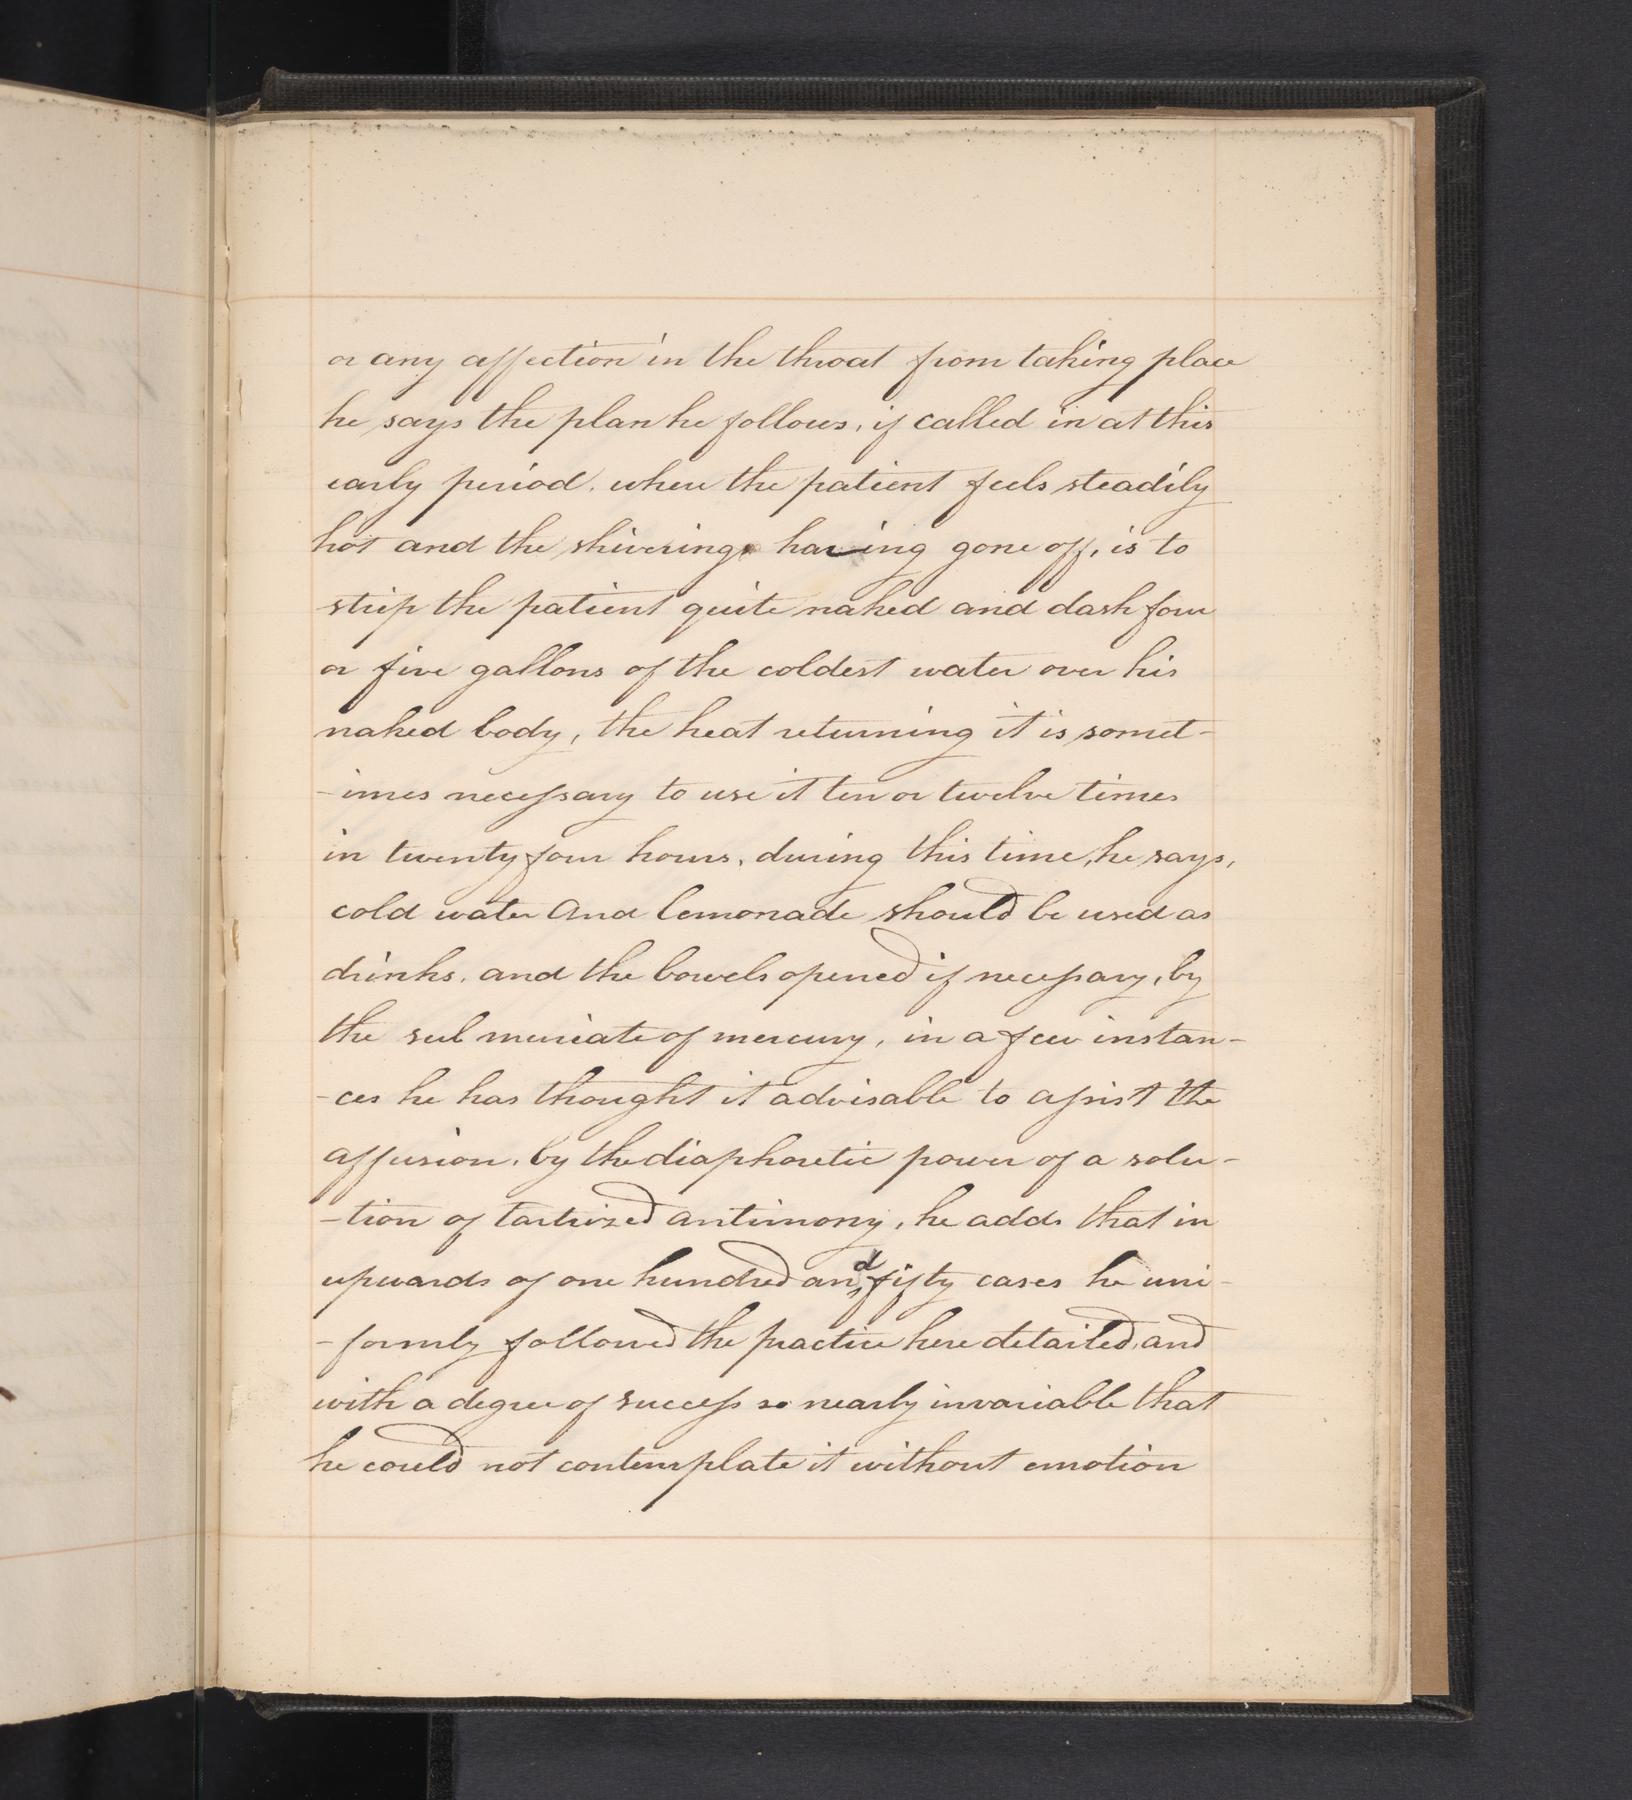 or any affection in the throat from taking place
he says the plan he follows, if called in at this
early period, when the patient feels steadily
hot and the shivering having gone off, is to
strip the patient quite naked and dash four
or five gallons of the coldest water over his
naked body, the heat returning it is somet-
-imes necessary to use it ten or twelve times
in twenty four hours, during this time, he says,
cold water and lemonade should be used as
drinks, and the bowels opened if necessary, by
the sub muriate of mercury, in a few instan-
-ces he has thought it advisable to assist the
affusion, by the diaphoretic power of a solu-
-tion of tartrized antimony, he adds that in
upwards of one hundred and fifty cases he uni-
-formly followed the practice here detailed, and
with a degree of success so nearly invariable that
he could not contemplate it without emotion